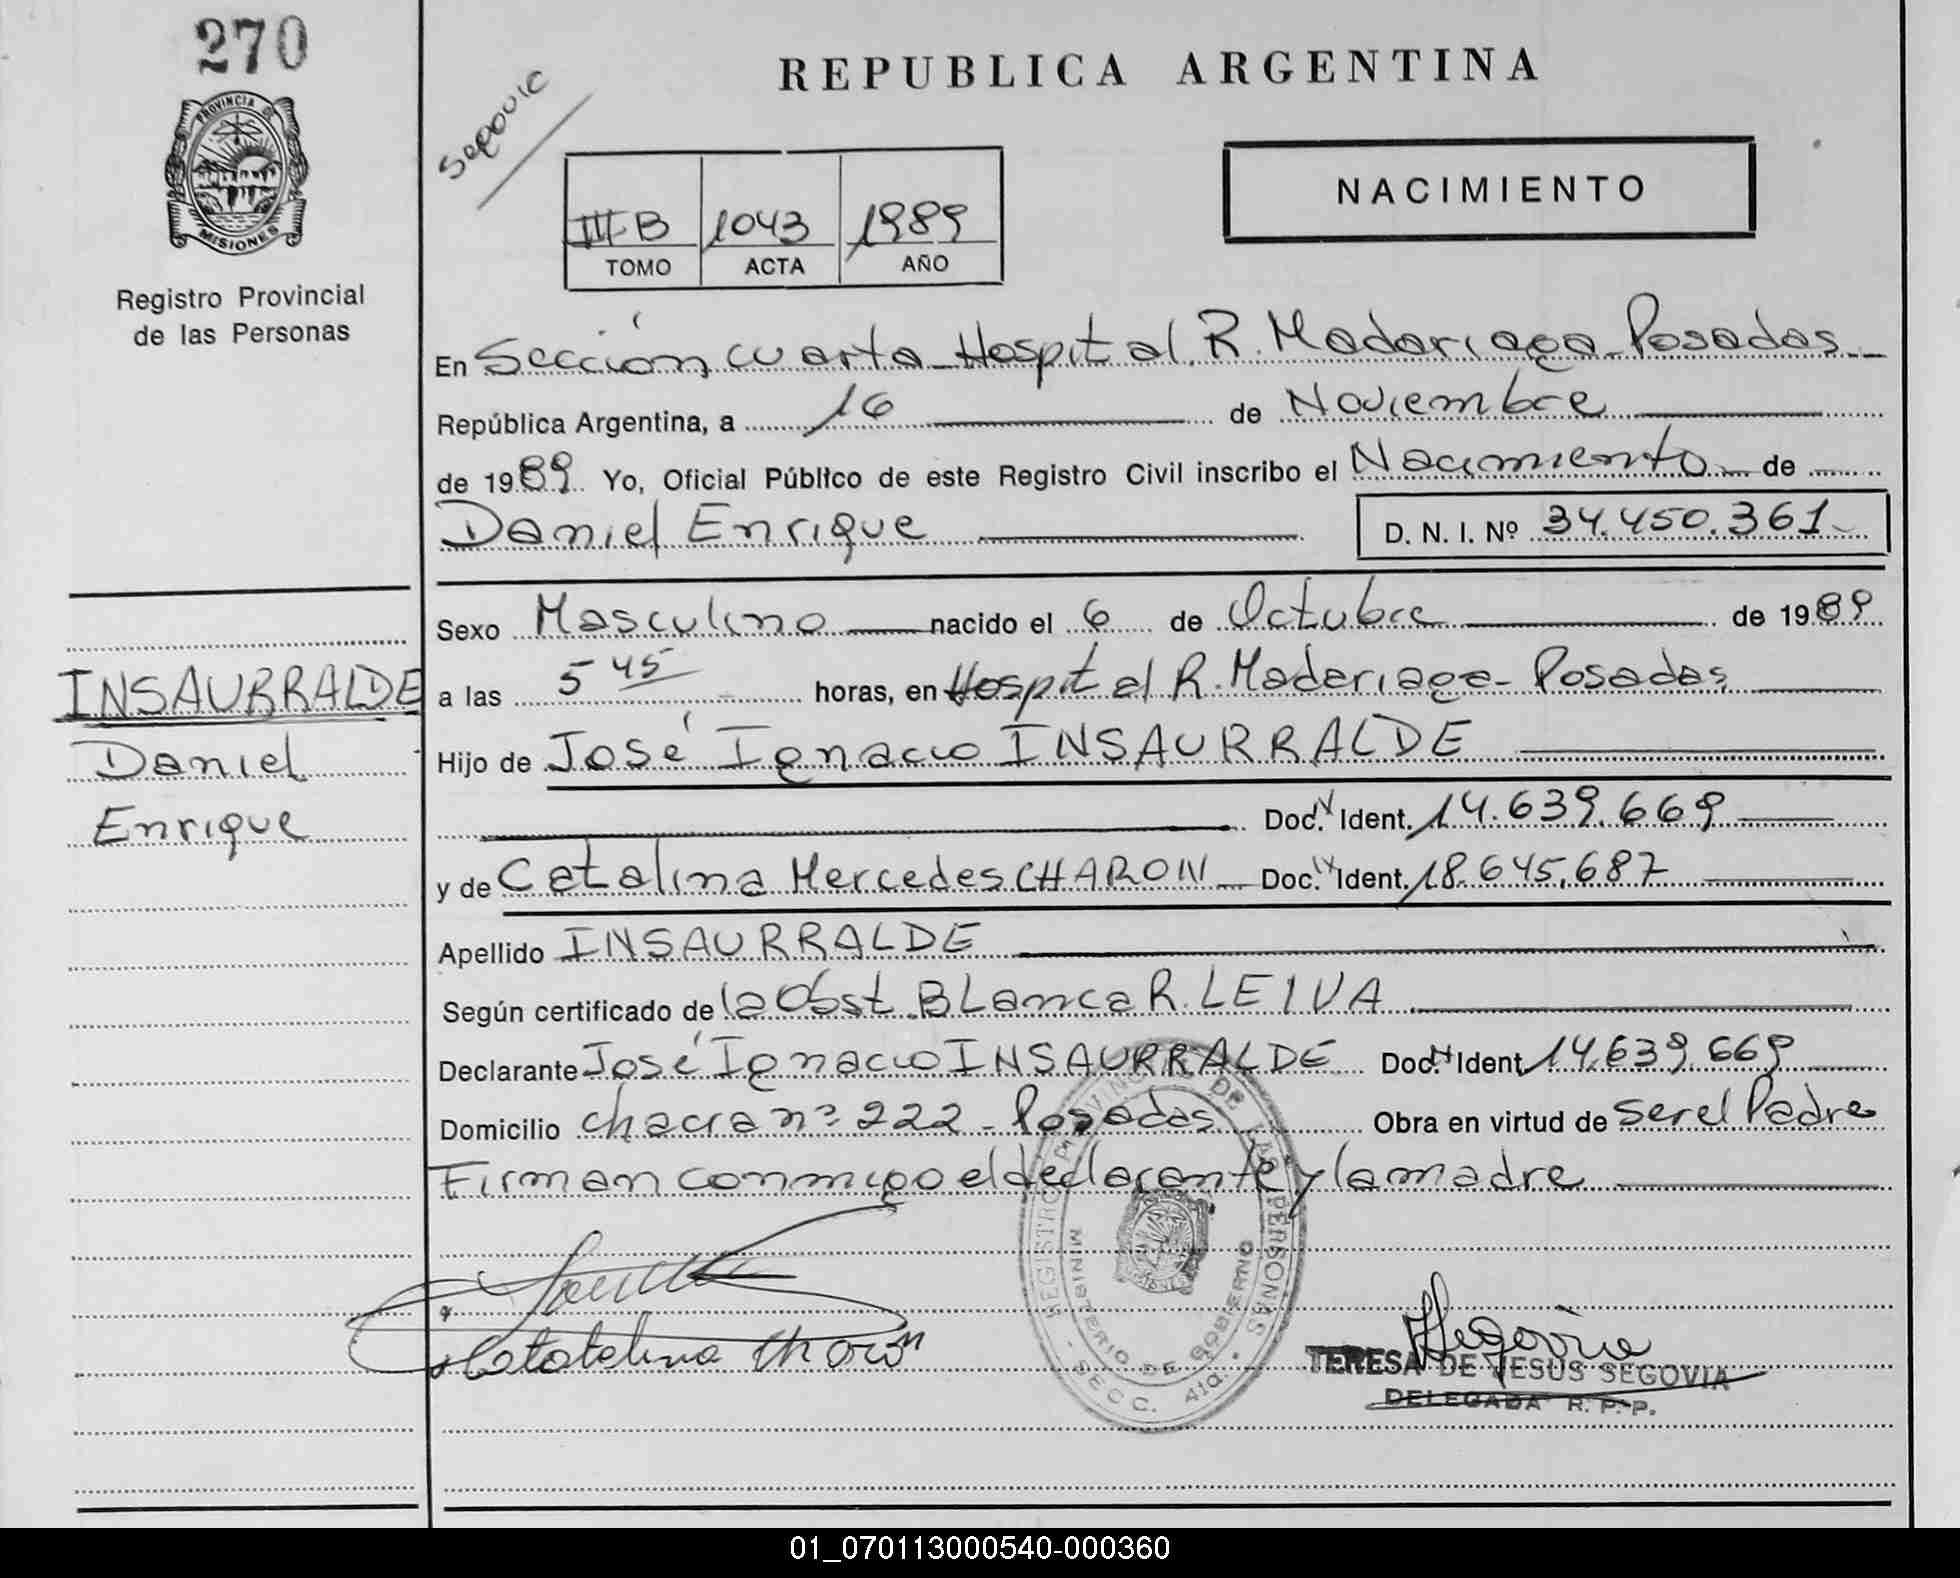 270
PROVINCIA DE
MISIONES
Registro Provincial
de las Personas
INSAURRALDE
Daniel
Enrique
REPUBLICA ARGENTINA
Segovia
III B 1043 1989
TOMO ACTA AÑO
NACIMIENTO
En Sección cuarta Hospital R. Madariaga Posadas
República Argentina, a 16 de Noviembre
de 1989 Yo, Oficial Público de este Registro Civil inscribo el Nacimiento de
Daniel Enrique D. N. I. Nº 34.450.361
Sexo Masculino nacido el 6 de Octubre de 1989
a las 5 45 horas, en Hospital R. Madariaga - Posadas
Hijo de José Ignacio INSAURRALDE
Doc. Ident. 14.639.669
y de Catalina Mercedes CHARON Doc. Ident. 18.645.687
Apellido INSAURRALDE
Según certificado de la Obst. Blanca R. LEIVA
Declarante José Ignacio INSAURRALDE Doc. Ident. 14.639.669
Domicilio chacra nº 222 - Posadas Obra en virtud de ser el Padre
Firman conmigo el declarante y la madre
REGISTRO PROVINCIAL DE LAS PERSONAS
MINISTERIO DE GOBIERNO
- SECC. 4ta. -
Segovia
TERESA DE JESUS SEGOVIA
DELEGADA R. P. P.
01_070113000540-000360